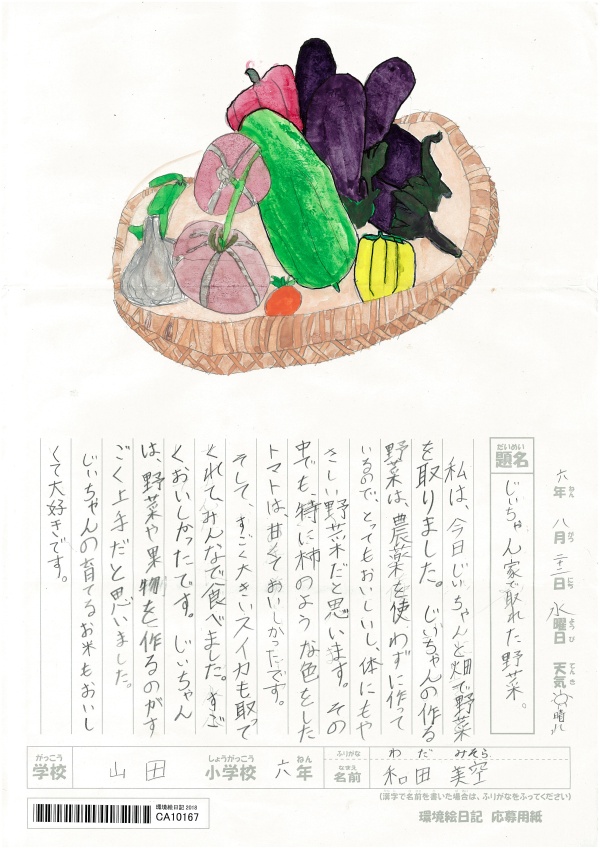 六年 八月 二十二日 水曜日 天気 晴れ
ねん がつ にち ようび てんき
だいめい
題名
じいちゃん家で取れた野菜。
私は、今日じいちゃんと畑で野菜
を取りました。じいちゃんの作る
野菜は、農薬を使わずに作って
いるので、とってもおいしいし、体にもや
さしい野菜だと思います。その
中でも特に柿のような色をした
トマトは、甘くておいしかったです。
そして、すごく大きいスイカも取って
くれて、みんなで食べました。すご
くおいしかったです。じいちゃん
は、野菜や果物を作るのがす
ごく上手だと思いました。
じいちゃんの育てるお米もおいし
くて大好きです。
がっこう しょうがっこう ねん
学校 山田 小学校 六年
ふりがな わだ みそら
なまえ
名前 和田 美空
(漢字で名前を書いた場合は、ふりがなをふってください)
環境絵日記 応募用紙
環境絵日記 2018
CA10167